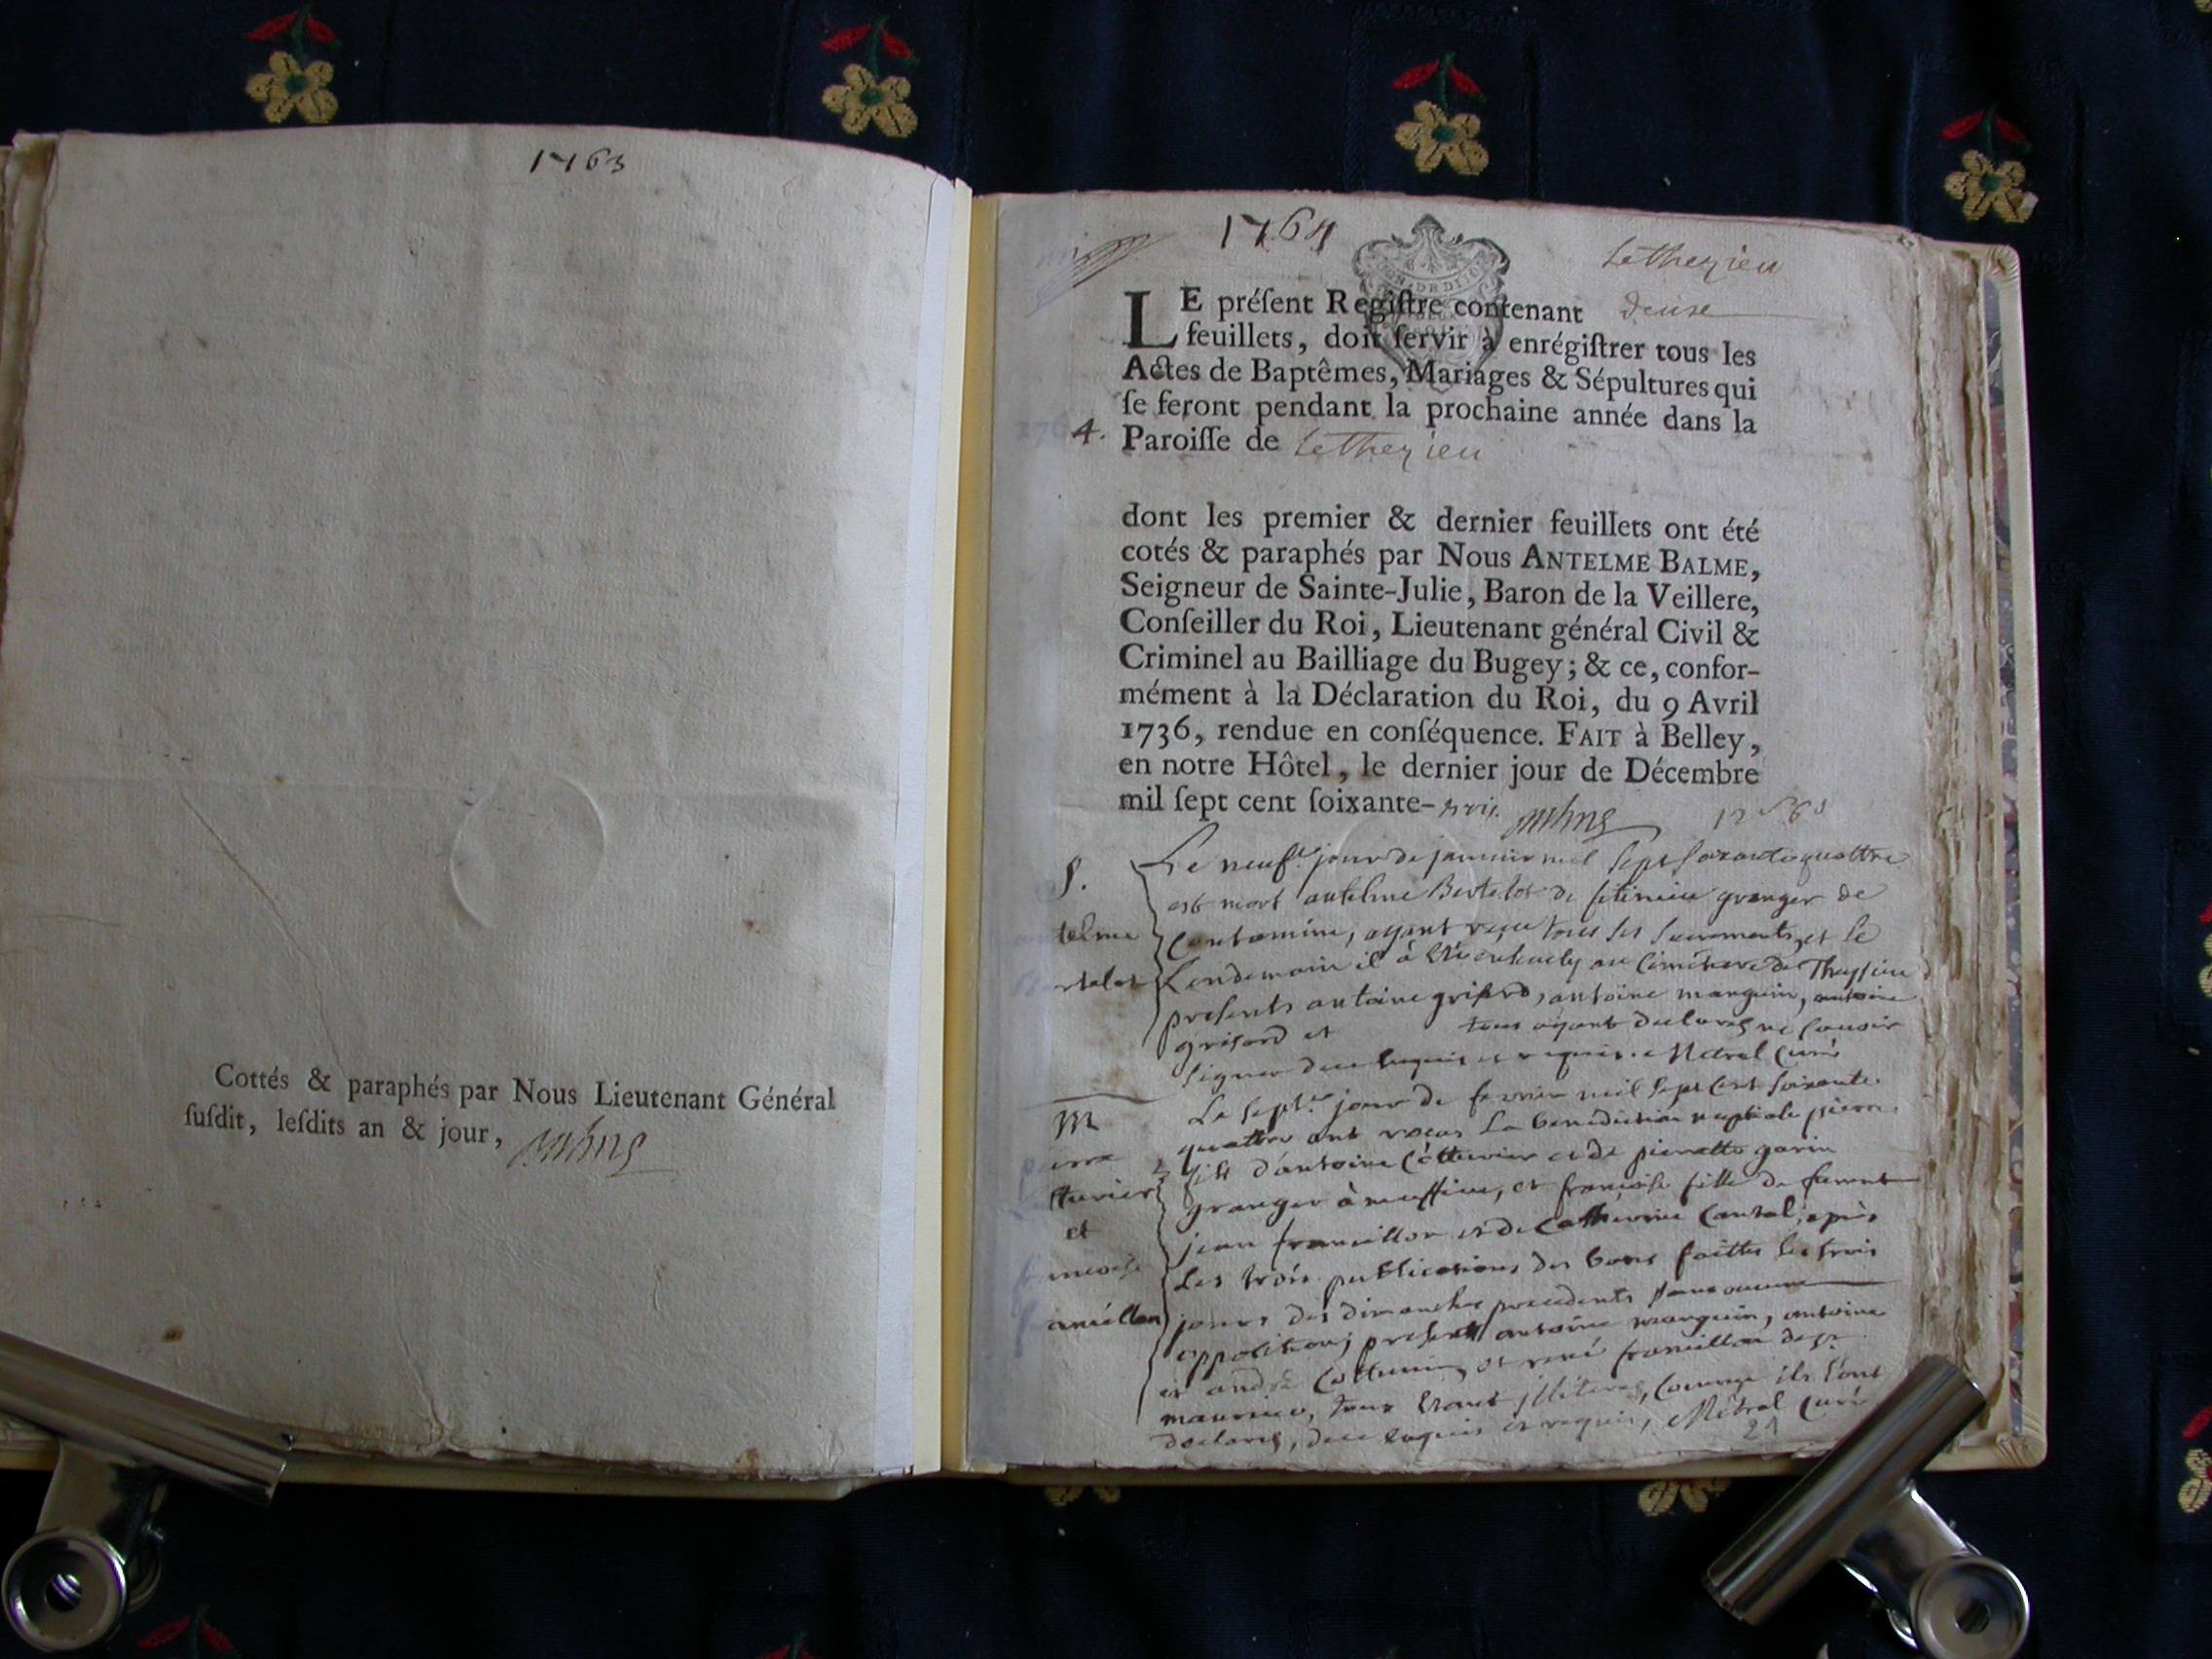 1763
Cottés & paraphés par Nous Lieutenant Général
ſuſdit, leſdits an & jour,
1764
Lethezieu
LE préſent Regiſtre contenant deuse
feuillets, doit ſervir à enrégiſtrer tous les
Actes de Baptêmes, Mariages & Sépultures qui
ſe feront pendant la prochaine année dans la
4. Paroiſſe de Lethezieu
dont les premier & dernier feuillets ont été
cotés & paraphés par Nous ANTELME BALME,
Seigneur de Sainte-Julie, Baron de la Veillere,
Conſeiller du Roi, Lieutenant général Civil &
Criminel au Bailliage du Bugey; & ce, confor-
mément à la Déclaration du Roi, du 9 Avril
1736, rendue en conſéquence. FAIT à Belley,
en notre Hôtel, le dernier jour de Décembre
mil ſept cent ſoixante-trois.
S.
telme
rtelot
Le neuf.e jour de janvier mil sept soixante quattre
est mort antelme Bertelot de granger de
Contamine, ayant reçu tous les sacrements, et le
Lendemain il à été au Cimetiere de Theysieu
presents antoine grisard, antoine manguin, antoine
grisard et tous ayants declarés ne scavoir
signer de ce enquis et requis. Metral Curé
M
ierre
tturier
et
ancoise
amillon
Le sept.e jour de fevrier mil sept cent soixante
quattre ont reçus La benediction nuptiale pierre
fils d'antoine Cotturier et de pierrette garin
granger à et françoise fille de
jean framillon et de Catherine Cautal, après
Les trois publications des bans faittes les trois
jours des dimanches precedents sans aucune
opposition; presents antoine manguin, antoine
et andré Cotturier et framillon
tous illiterés, comme ils l'ont
declaré, de ce enquis et requis, Metral Curé
21